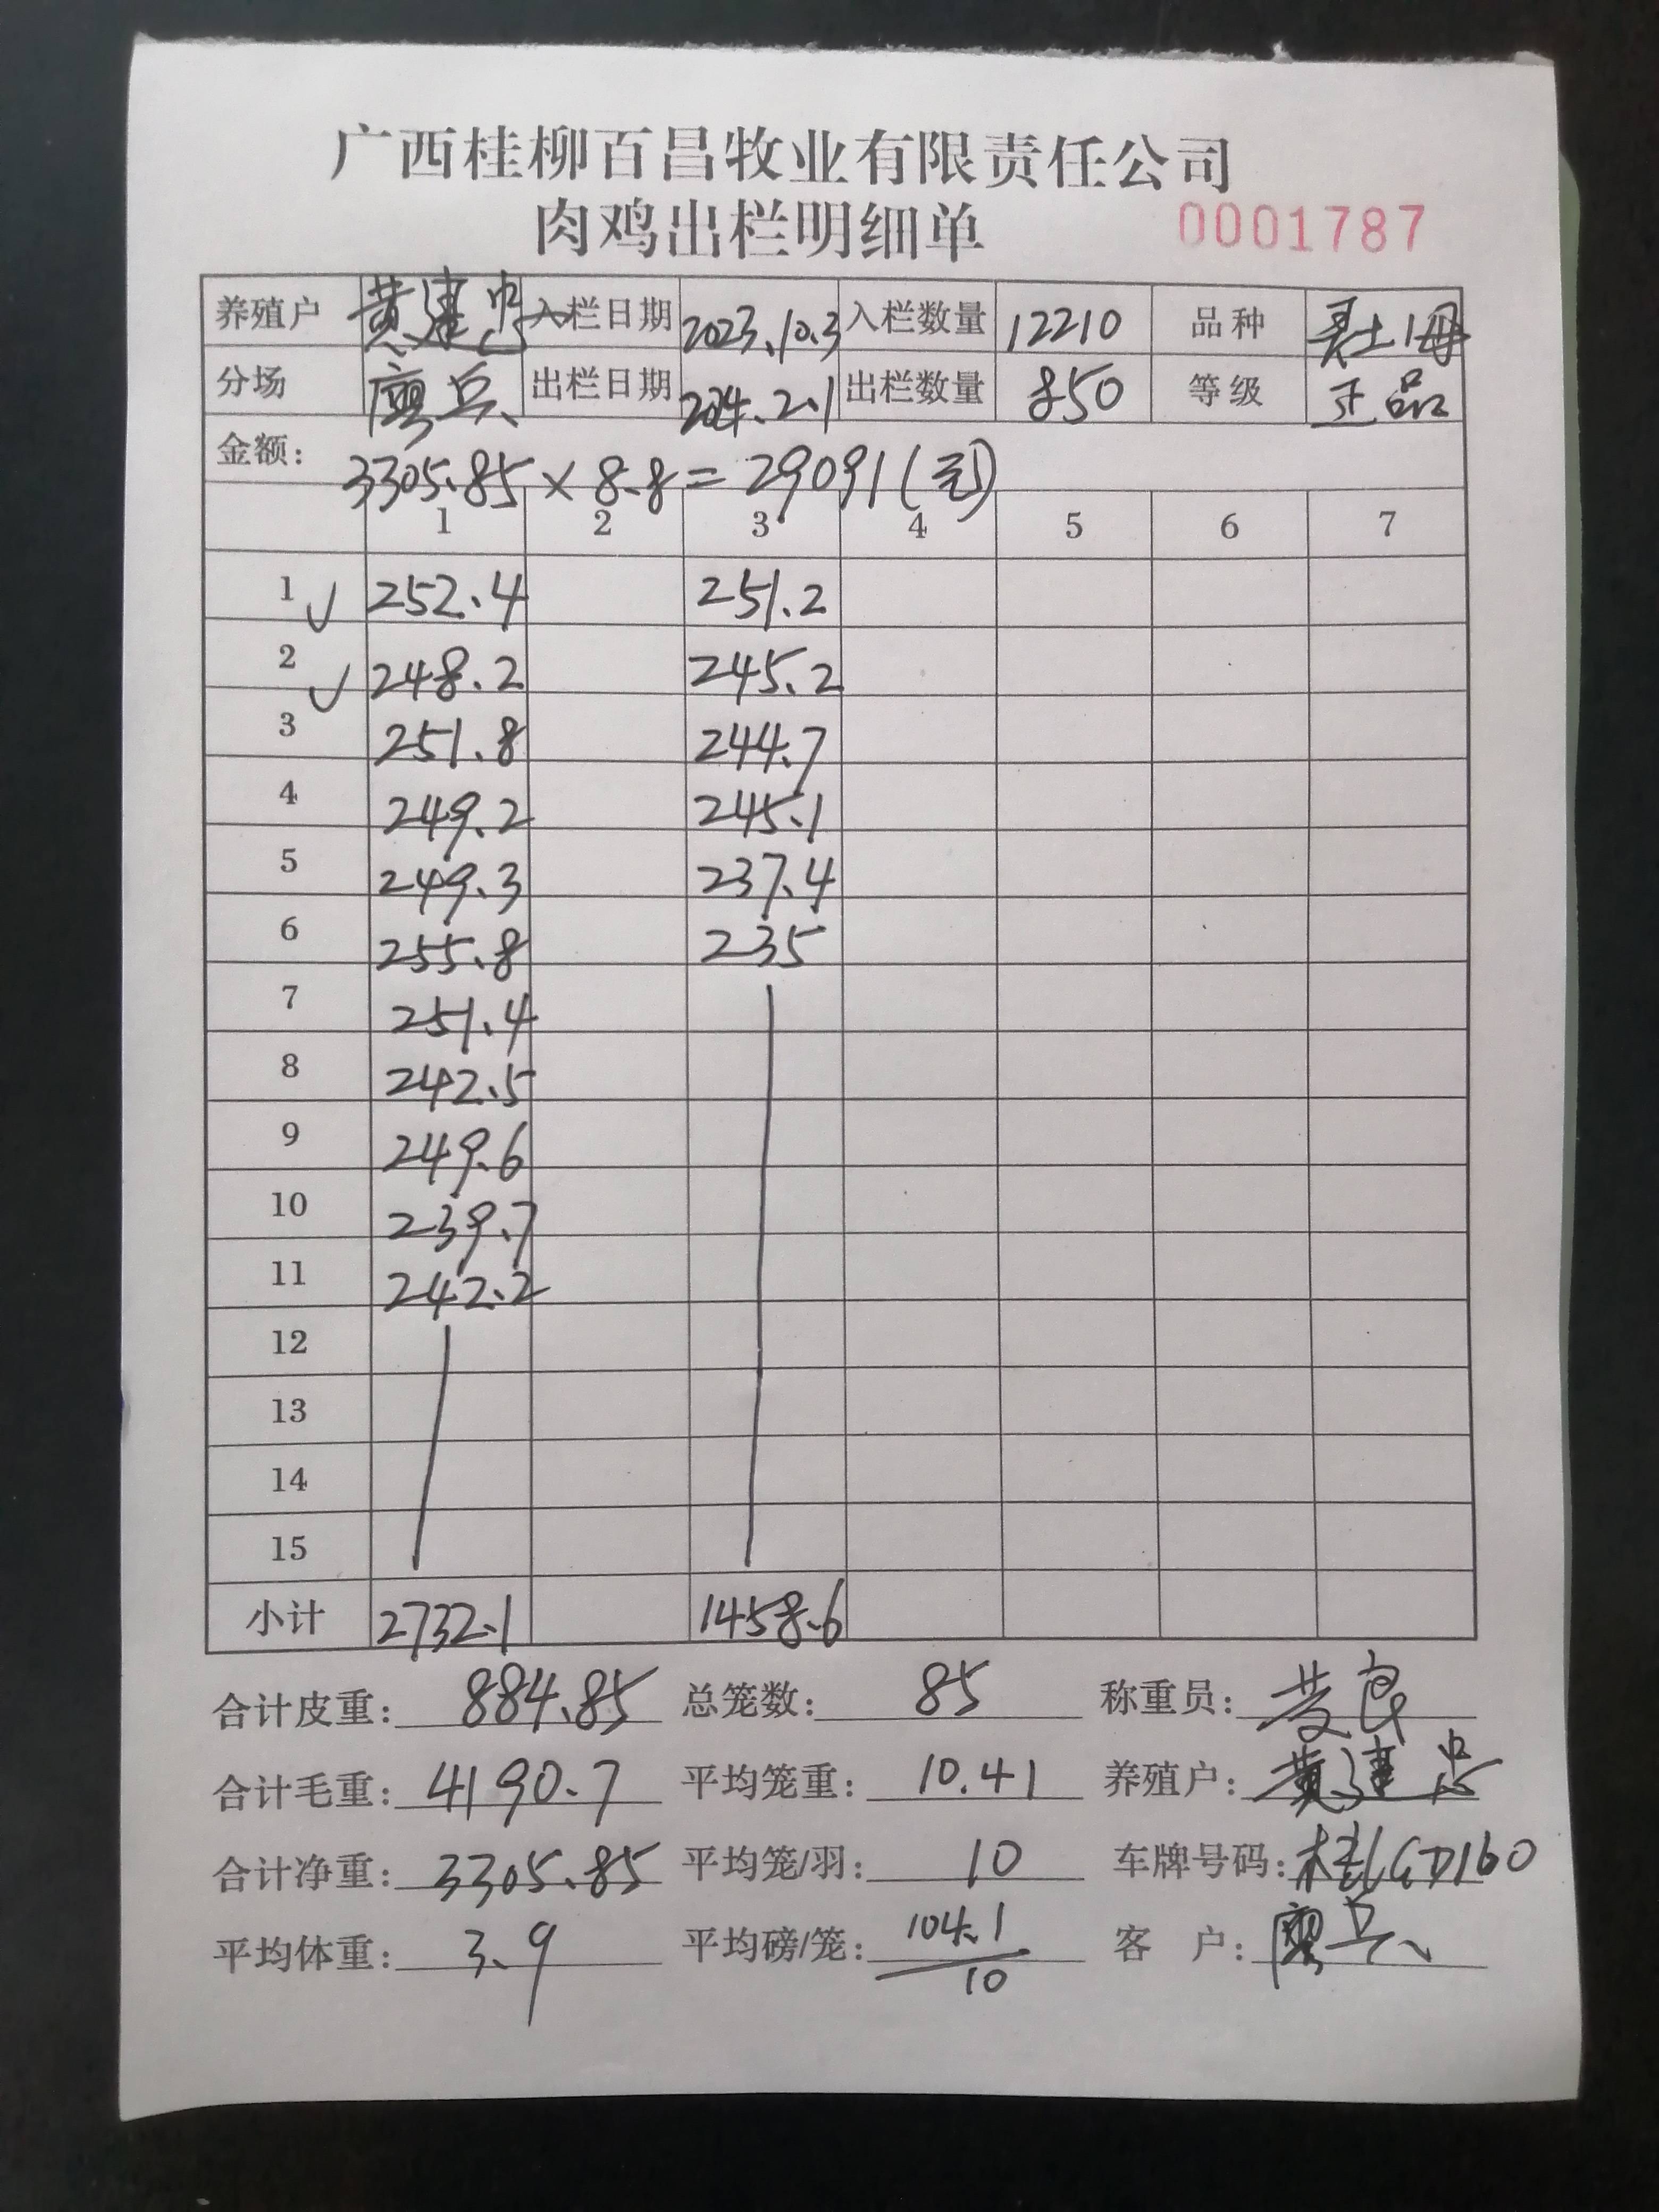 广西桂柳百昌牧业有限责任公司
肉鸡出栏明细单 0001787
养殖户 黄建忠 入栏日期 2023.10.3 入栏数量 12210 品种 灵土1母
分场 廖兵 出栏日期 2024.2.1 出栏数量 850 等级 正品
金额: 3305.85×8.8=29091(元)
1 2 3 4 5 6 7
1 ✓ 252.4 251.2
2 ✓ 248.2 245.2
3 251.8 244.7
4 249.2 245.1
5 249.3 237.4
6 255.8 235
7 251.4
8 242.5
9 249.6
10 239.7
11 242.2
12
13
14
15
小计 2732.1 1458.6
合计皮重: 884.85 总笼数: 85 称重员:
合计毛重: 4190.7 平均笼重: 10.41 养殖户: 黄建忠
合计净重: 3305.85 平均笼/羽: 10 车牌号码:
平均体重: 3.9 平均磅/笼: 104.1/10 客 户: 廖兵